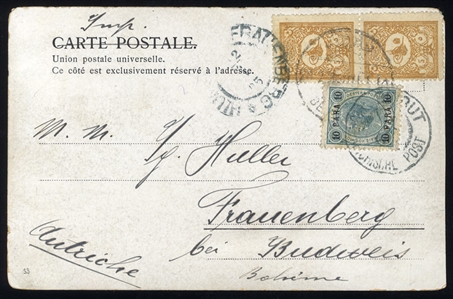 Imp.
CARTE POSTALE.
Union postale universelle.
Ce côté est exclusivement réservé à l'adresse.
FRAUENBERG
10 PARA 10
POST
M. M.
Huller
Frauenberg
bei Budweis
Autriche
Bohême
53